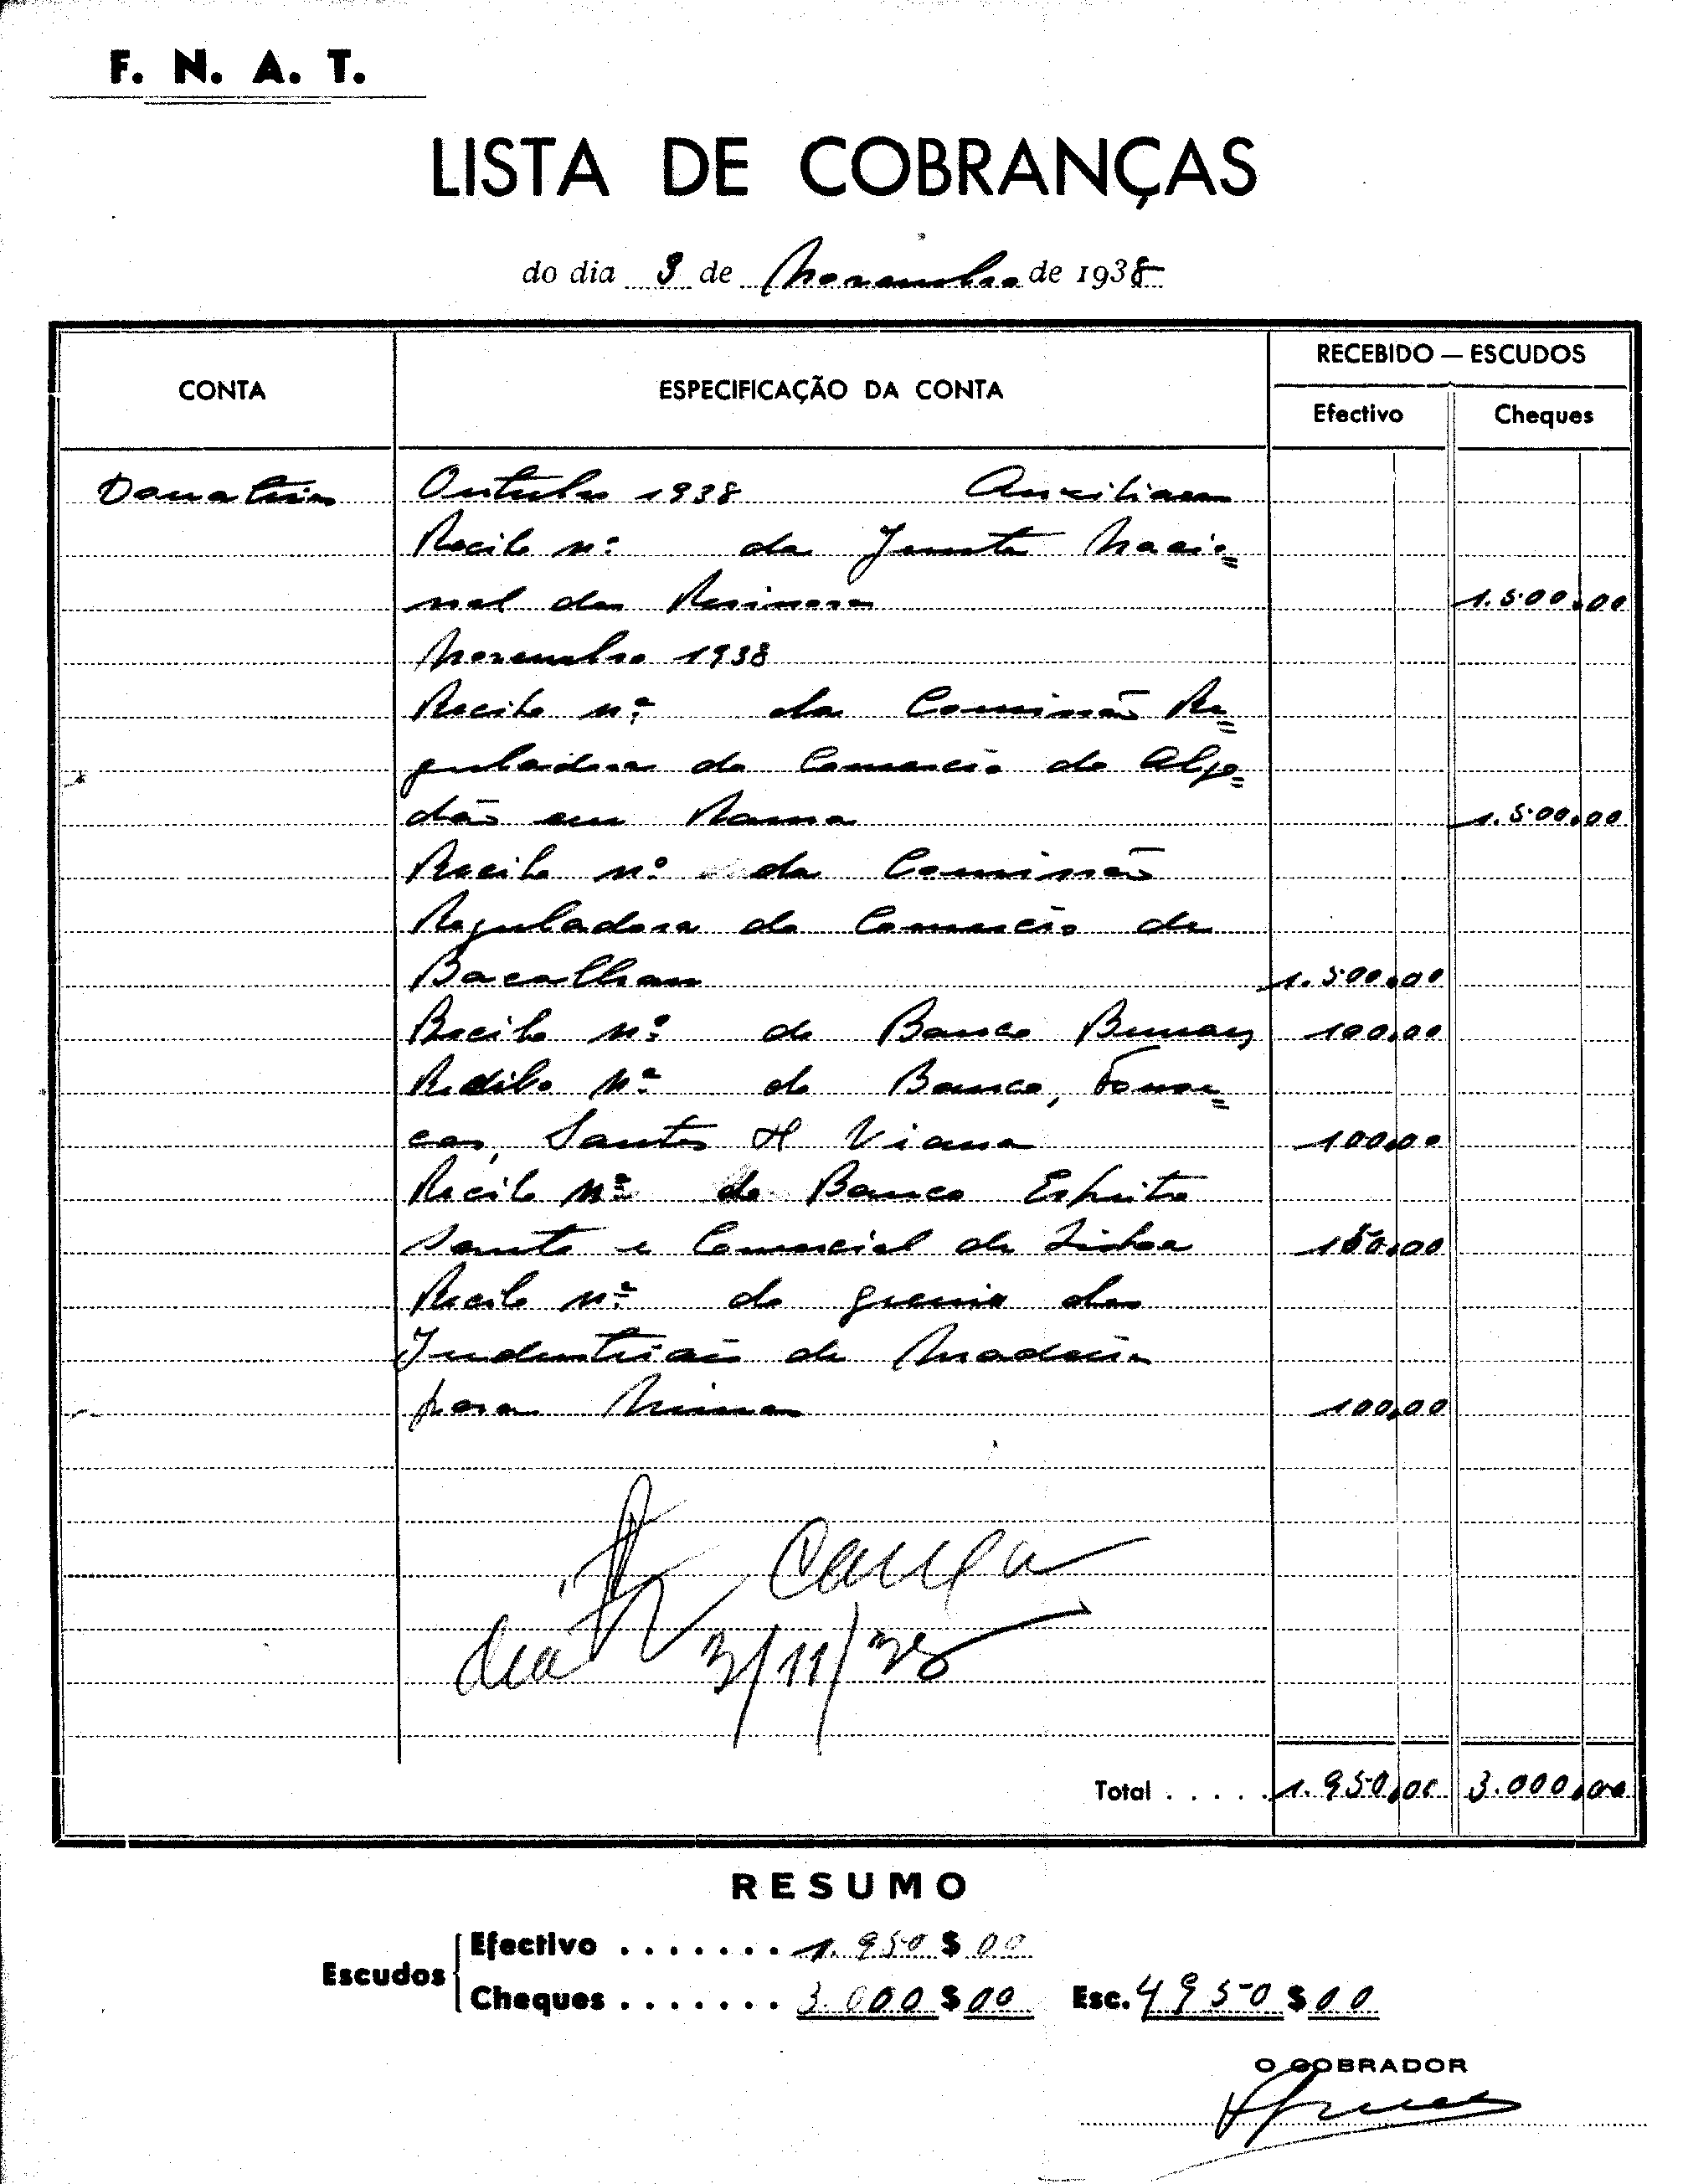 F. N. A. T.
LISTA DE COBRANÇAS
do dia 3 de Novembro de 1938
CONTA ESPECIFICAÇÃO DA CONTA RECEBIDO — ESCUDOS
Efectivo Cheques
Donativos Outubro 1938 Auxiliares
Recibo nº da Junta Nacio=
nal dos Resinosos 1.500,00
Novembro 1938
Recibo nº da Comissão Re=
guladora do Comercio do Algo=
dão em Rama 1.500,00
Recibo nº da Comissão
Reguladora do Comercio de
Bacalhau 1.500,00
Recibo nº do Banco Burnay 100,00
Recibo nº do Banco, Fonse=
cas, Santos & Viana 100,00
Recibo nº do Banco Espirito
Santo e Comercial de Lisboa 150,00
Recibo nº do Gremio dos
Industriais de Madeira
para Minas 100,00
3/11/38
Total . . . . . 1.950,00 3.000,00
RESUMO
Escudos
Efectivo . . . . . . . 1.950$00
Cheques . . . . . . . 3.000$00 Esc. 4950$00
O COBRADOR